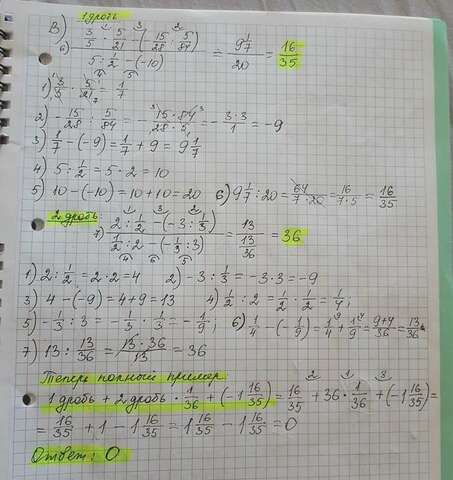 1 дробь
В) (3/5 · 5/21 - (15/28 : 5/84)) / (5 : 1/2 - (-10)) = 9 1/7 / 20 = 16/35
1) 3/5 · 5/21 = 1/7
2) - 15/28 : 5/84 = - 15·84/28·5 = - 3·3/1 = -9
3) 1/7 - (-9) = 1/7 + 9 = 9 1/7
4) 5 : 1/2 = 5·2 = 10
5) 10 - (-10) = 10 + 10 = 20 6) 9 1/7 : 20 = 64/7·20 = 16/7·5 = 16/35
2 дробь
7) (2 : 1/2 - (-3 : 1/3)) / (1/2 : 2 - (-1/3 : 3)) = 13 / 13/36 = 36
1) 2 : 1/2 = 2·2 = 4 2) -3 : 1/3 = -3·3 = -9
3) 4 - (-9) = 4 + 9 = 13 4) 1/2 : 2 = 1/2 · 1/2 = 1/4;
5) - 1/3 : 3 = - 1/3 · 1/3 = - 1/9; 6) 1/4 - (-1/9) = 1/4 + 1/9 = 9+4/36 = 13/36
7) 13 : 13/36 = 13·36/13 = 36
Теперь полный пример
1 дробь + 2 дробь · 1/36 + (-1 16/35) = 16/35 + 36 · 1/36 + (-1 16/35) =
= 16/35 + 1 - 1 16/35 = 1 16/35 - 1 16/35 = 0
Ответ: 0